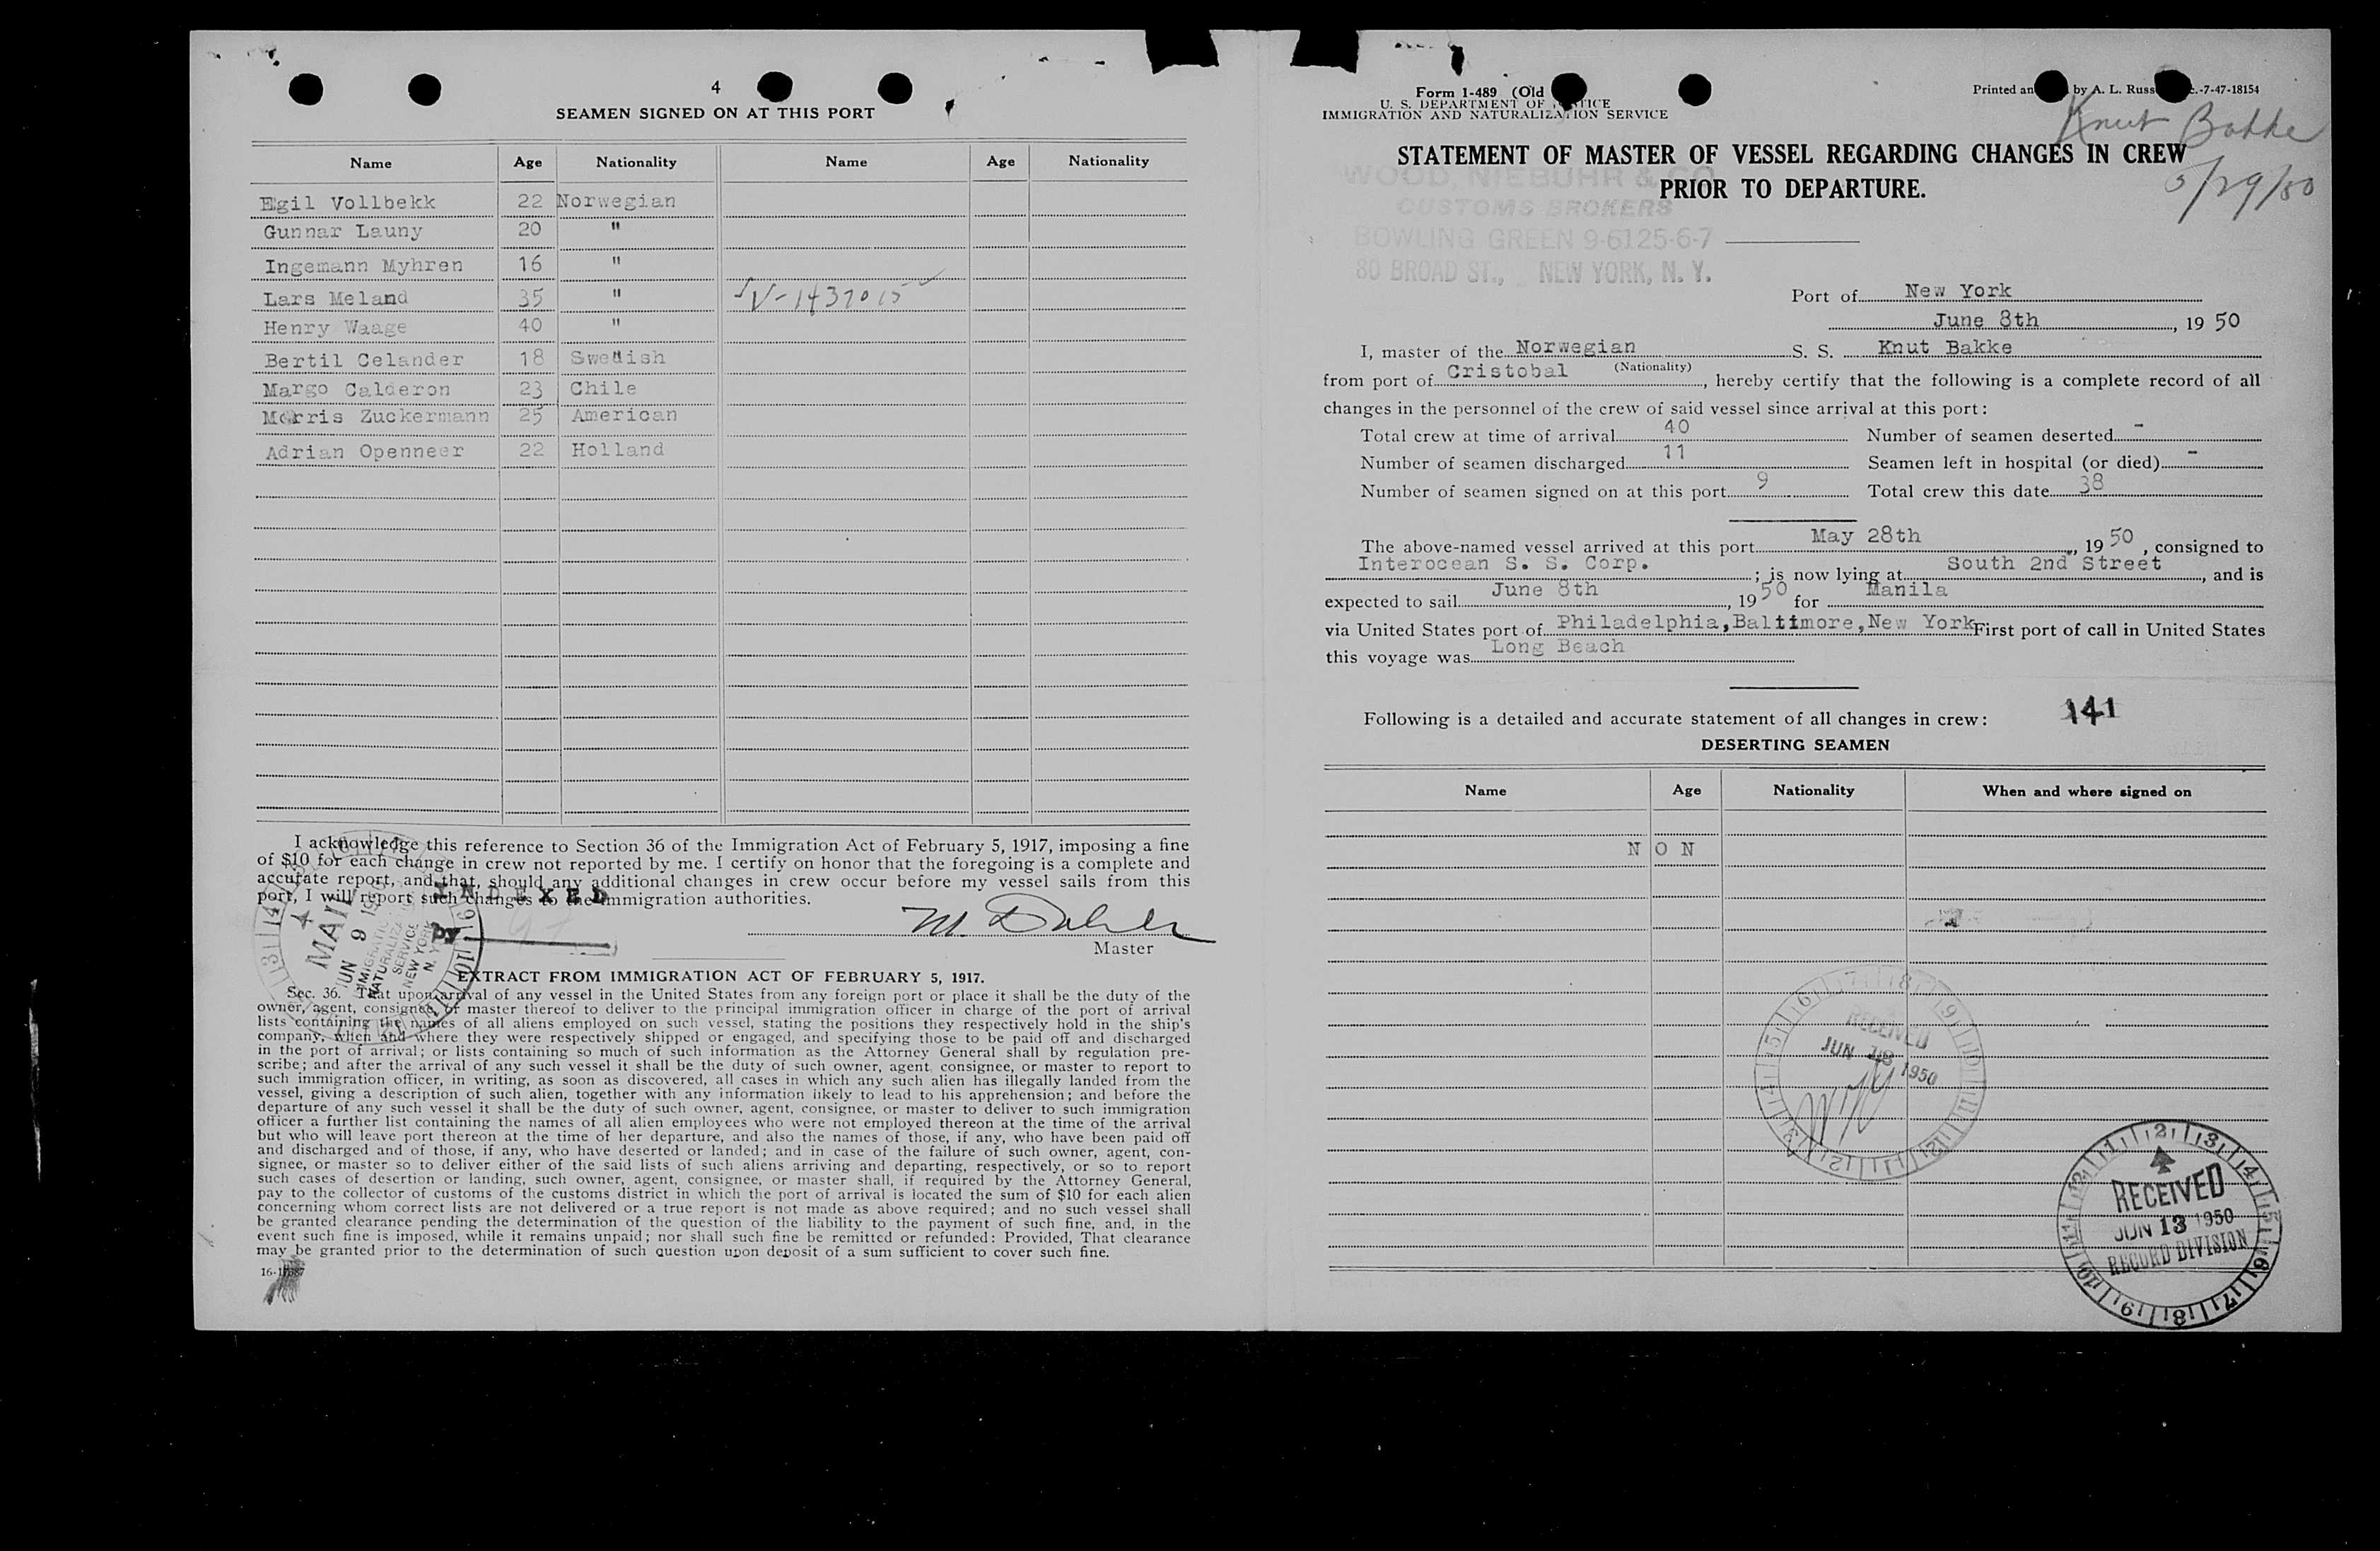 4
SEAMEN SIGNED ON AT THIS PORT
Name Age Nationality Name Age Nationality
Egil Vollbekk 22 Norwegian
Gunnar Launy 20 "
Ingemann Myhren 16 "
Lars Meland 35 " V-1437015
Henry Waage 40 "
Bertil Celander 18 Swedish
Margo Calderon 23 Chile
Morris Zuckermann 25 American
Adrian Openneer 22 Holland
I acknowledge this reference to Section 36 of the Immigration Act of February 5, 1917, imposing a fine
of $10 for each change in crew not reported by me. I certify on honor that the foregoing is a complete and
accurate report, and that, should any additional changes in crew occur before my vessel sails from this
port, I will report such changes to the immigration authorities.
INDEXED
by
MAIL
JUN 9
IMMIGRATION
NATURALIZA
SERVICE
NEW YORK
N. Y.
Master
EXTRACT FROM IMMIGRATION ACT OF FEBRUARY 5, 1917.
Sec. 36. That upon arrival of any vessel in the United States from any foreign port or place it shall be the duty of the
owner, agent, consignee, or master thereof to deliver to the principal immigration officer in charge of the port of arrival
lists containing the names of all aliens employed on such vessel, stating the positions they respectively hold in the ship's
company, when and where they were respectively shipped or engaged, and specifying those to be paid off and discharged
in the port of arrival; or lists containing so much of such information as the Attorney General shall by regulation pre-
scribe; and after the arrival of any such vessel it shall be the duty of such owner, agent, consignee, or master to report to
such immigration officer, in writing, as soon as discovered, all cases in which any such alien has illegally landed from the
vessel, giving a description of such alien, together with any information likely to lead to his apprehension; and before the
departure of any such vessel it shall be the duty of such owner, agent, consignee, or master to deliver to such immigration
officer a further list containing the names of all alien employees who were not employed thereon at the time of the arrival
but who will leave port thereon at the time of her departure, and also the names of those, if any, who have been paid off
and discharged and of those, if any, who have deserted or landed; and in case of the failure of such owner, agent, con-
signee, or master so to deliver either of the said lists of such aliens arriving and departing, respectively, or so to report
such cases of desertion or landing, such owner, agent, consignee, or master shall, if required by the Attorney General,
pay to the collector of customs of the customs district in which the port of arrival is located the sum of $10 for each alien
concerning whom correct lists are not delivered or a true report is not made as above required; and no such vessel shall
be granted clearance pending the determination of the question of the liability to the payment of such fine, and, in the
event such fine is imposed, while it remains unpaid; nor shall such fine be remitted or refunded: Provided, That clearance
may be granted prior to the determination of such question upon deposit of a sum sufficient to cover such fine.
Form I-489 (Old
U. S. DEPARTMENT OF JUSTICE
IMMIGRATION AND NATURALIZATION SERVICE
Printed an by A. L. Russ .-7-47-18154
Knut Bakke
5/29/50
STATEMENT OF MASTER OF VESSEL REGARDING CHANGES IN CREW
PRIOR TO DEPARTURE.
WOOD, NIEBUHR & CO
CUSTOMS BROKERS
BOWLING GREEN 9-6125-6-7
80 BROAD ST., NEW YORK, N. Y.
Port of New York
June 8th, 19 50
I, master of the Norwegian S. S. Knut Bakke
(Nationality)
from port of Cristobal, hereby certify that the following is a complete record of all
changes in the personnel of the crew of said vessel since arrival at this port:
Total crew at time of arrival 40 Number of seamen deserted -
Number of seamen discharged 11 Seamen left in hospital (or died) -
Number of seamen signed on at this port 9 Total crew this date 38
The above-named vessel arrived at this port May 28th, 19 50, consigned to
Interocean S. S. Corp. ; is now lying at South 2nd Street, and is
expected to sail June 8th, 19 50 for Manila
via United States port of Philadelphia, Baltimore, New York First port of call in United States
this voyage was Long Beach
Following is a detailed and accurate statement of all changes in crew: 141
DESERTING SEAMEN
Name Age Nationality When and where signed on
N O N
RECEIVED
JUN 1950
RECEIVED
JUN 13 1950
RECORD DIVISION